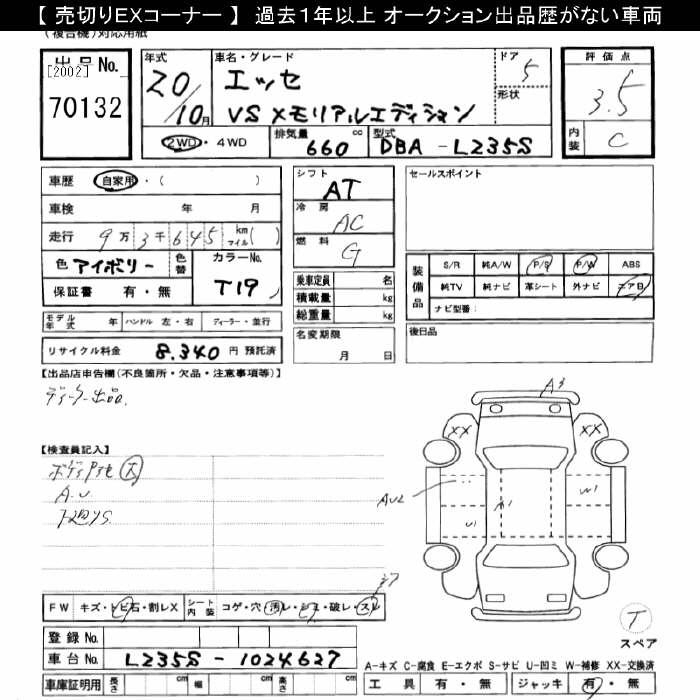 【 売切りEXコーナー 】 過去1年以上 オークション出品歴がない車両
(複合機)対応用紙
出品No.
[2002]
70132
年式
20/10月
車名・グレード
エッセ
VS メモリアルエディション
ドア
5
形状
評価点
3.5
内装
C
2WD・4WD
排気量
660 cc
型式
DBA-L235S
車歴 自家用・( )
車検 年 月
走行 9万3千645 km マイル( )
色 アイボリー 色替 カラーNo.
保証書 有・無 T19
モデル年式 年 ハンドル 左・右 ディーラー・並行
リサイクル料金 8.340 円 預託済
シフト
AT
冷房
AC
燃料
G
乗車定員 名
積載量 kg
総重量 kg
名変期限
月 日
セールスポイント
装備品
S/R 純A/W P/S P/W ABS
純TV 純ナビ 革シート 外ナビ エアB
ナビ型番:
後日品
【出品店申告欄(不良箇所・欠品・注意事項等)】
ディーラー出品
【検査員記入】
A.U
FW キズ・トビ石・割レX シート内装 コゲ・穴・汚レ・シミ・破レ・スレ
登録 No.
車台 No. L235S-1024627
車庫証明用 長さ cm 幅 cm 高さ cm
A3
XX XX
AU2
U1
A1
W1
T
スペア
A-キズ C-腐食 E-エクボ S-サビ U-凹ミ W-補修 XX-交換済
工具 有・無 ジャッキ 有・無